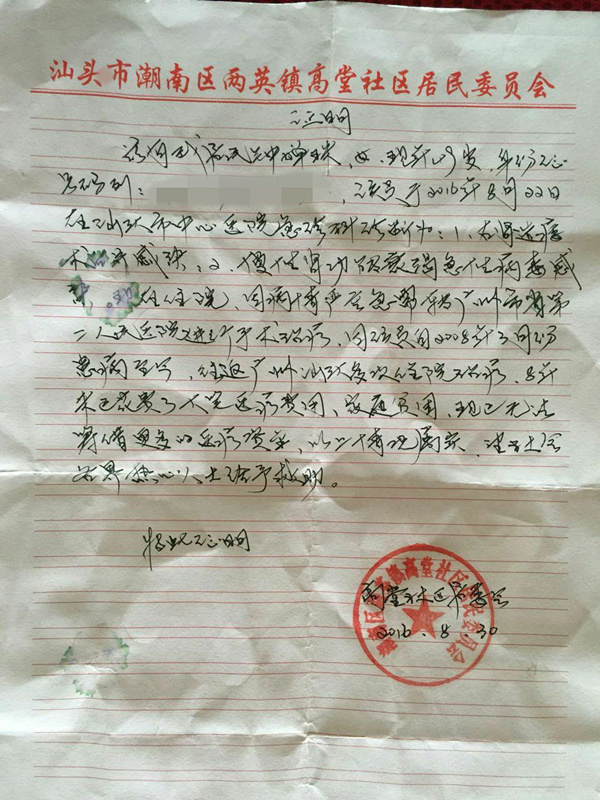 汕头市潮南区两英镇高堂社区居民委员会
证明
兹有我居民, 女, 现年19岁, 身份证
号码列:, 该员于2016年8月22日
在汕头市中心医院急诊科诊断为: 1、右肾造瘘
术后感染, 2、慢性肾功能衰竭急性病毒感
在住院, 因病情严重急需转广州市省第
二人民医院进行手术治疗, 因该员自2008年3月份
患病至今, 往返广州汕头多次住院治疗, 8年
来已花费了大笔医疗费用, 家庭贫困, 现已无法
筹借更多的医疗资金, 以上情况属实, 望社会
各界热心人士给予救助。
特此证明
高堂社区居委会
2016.8.30
镇高堂社区居民委员会